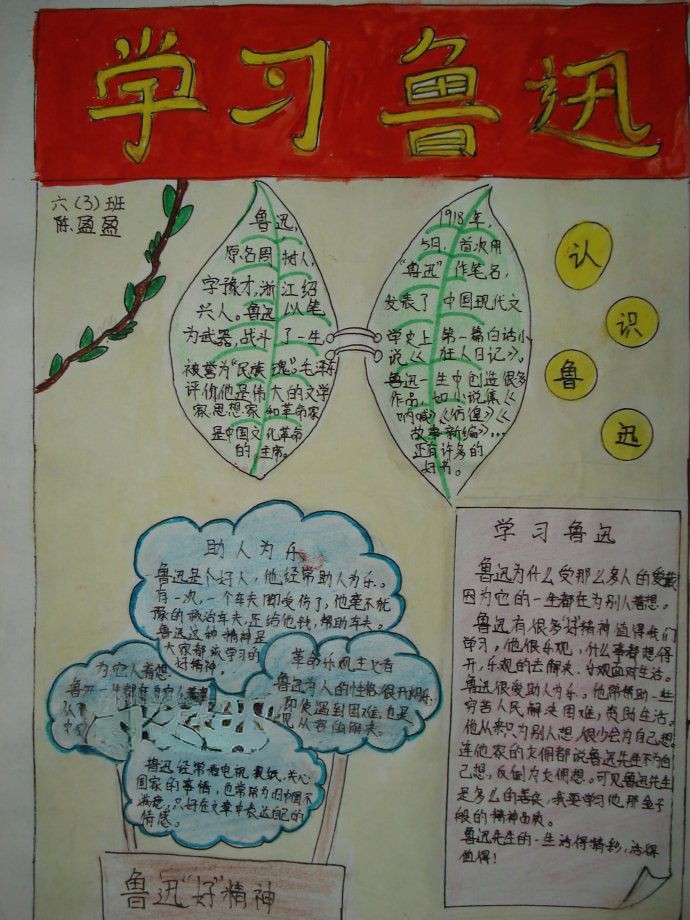 学习鲁迅
六(3)班
陈盈盈
鲁迅,
原名周树人,
字豫才,浙江绍
兴人。鲁迅以笔
为武器,战斗了一生
被誉为“民族魂”。毛泽东
评价他是伟大的文学
家思想家和革命家
是中国文化革命
的主席。
1918年,
5日,首次用
“鲁迅”作笔名,
发表了中国现代文
学史上第一篇白话小
说《狂人日记》。
鲁迅一生中创造很多
作品,如小说集《
呐喊》《彷徨》《
故事新编》...
还有许多的
好书。
认
识
鲁
迅
助人为乐
鲁迅是个好人,他经常助人为乐。
有一次,一个车夫脚受伤了,他毫不犹
豫的救治车夫,还给他钱,帮助车夫。
鲁迅这种精神是
大家都该学习的
好精神。
为它人着想
鲁迅一生都
革命乐观主义者
鲁迅为人的性格很开朗乐,
即使遇到困难,也是
从容面解决。
鲁迅经常看电视报纸,关心
国家的事情,也常常为旧中国不
满意,只好在文章中表达自己的
情感。
鲁迅“好”精神
学习鲁迅
鲁迅为什么受那么多人的爱戴
因为它的一生都在为别人着想。
鲁迅有很多好精神值得我们
学习。他很乐观,什么事都想得
开,乐观的去解决,乐观面对生活。
鲁迅很爱助人为乐。他常帮助一些
穷苦人民解决困难,赞助生活。
他从来只为别人想,很少会为自己想。
连他家的女佣都说鲁迅先生不为自
己想,反倒为女佣想。可见鲁迅先生
是多么的善良,我要学习他那金子
般的精神品质。
鲁迅先生的一生活得精彩,活得
值得!